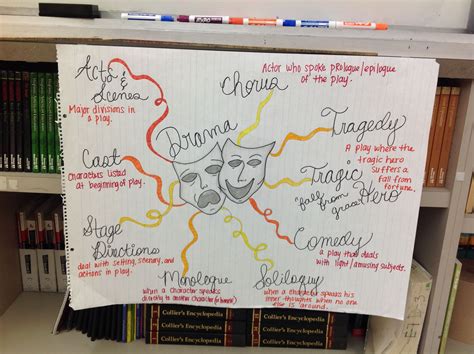 Acts
&
Scenes
Major divisions in
a play.
Chorus
Actor who spoke prologue/epilogue
of the play.
Drama
Tragedy
A play where the
tragic hero
suffers a
fall from
fortune.
Cast
Characters listed
at beginning of play.
Tragic
Hero
"fall from
grace"
Stage
Directions
deal with setting, scenery, and
actions in play.
Comedy
a play that deals
with light/amusing subjects.
Monologue
when a character speaks
directly to another character
Soliloquy
when a character speaks his
inner thoughts when no one
else is around.
Collier's Encyclopedia
Collier's Encyclopedia
Collier's Encyclopedia
Collier's Encyclopedia
Collier's Encyclopedia
Collier's Encyclopedia